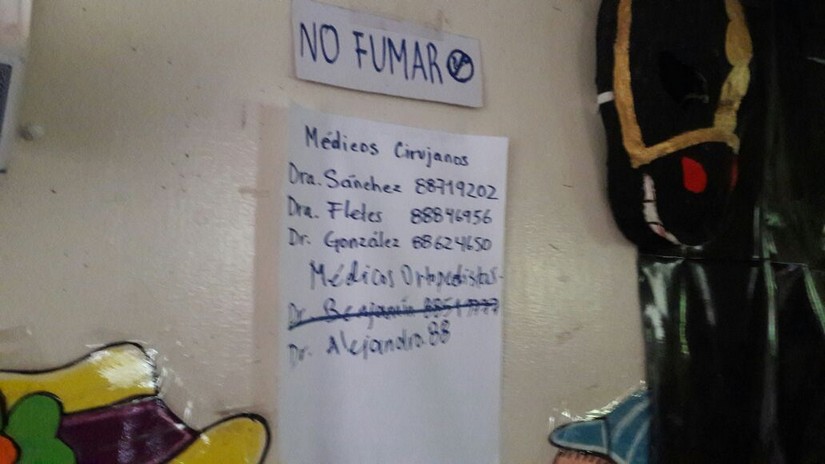 NO FUMAR
Médicos Cirujanos
Dra. Sánchez 88719202
Dra. Fletes 88846956
Dr. González 88624650
Médicos Ortopedistas-
Dr. Benjamín
Dr. Alejandro. 88